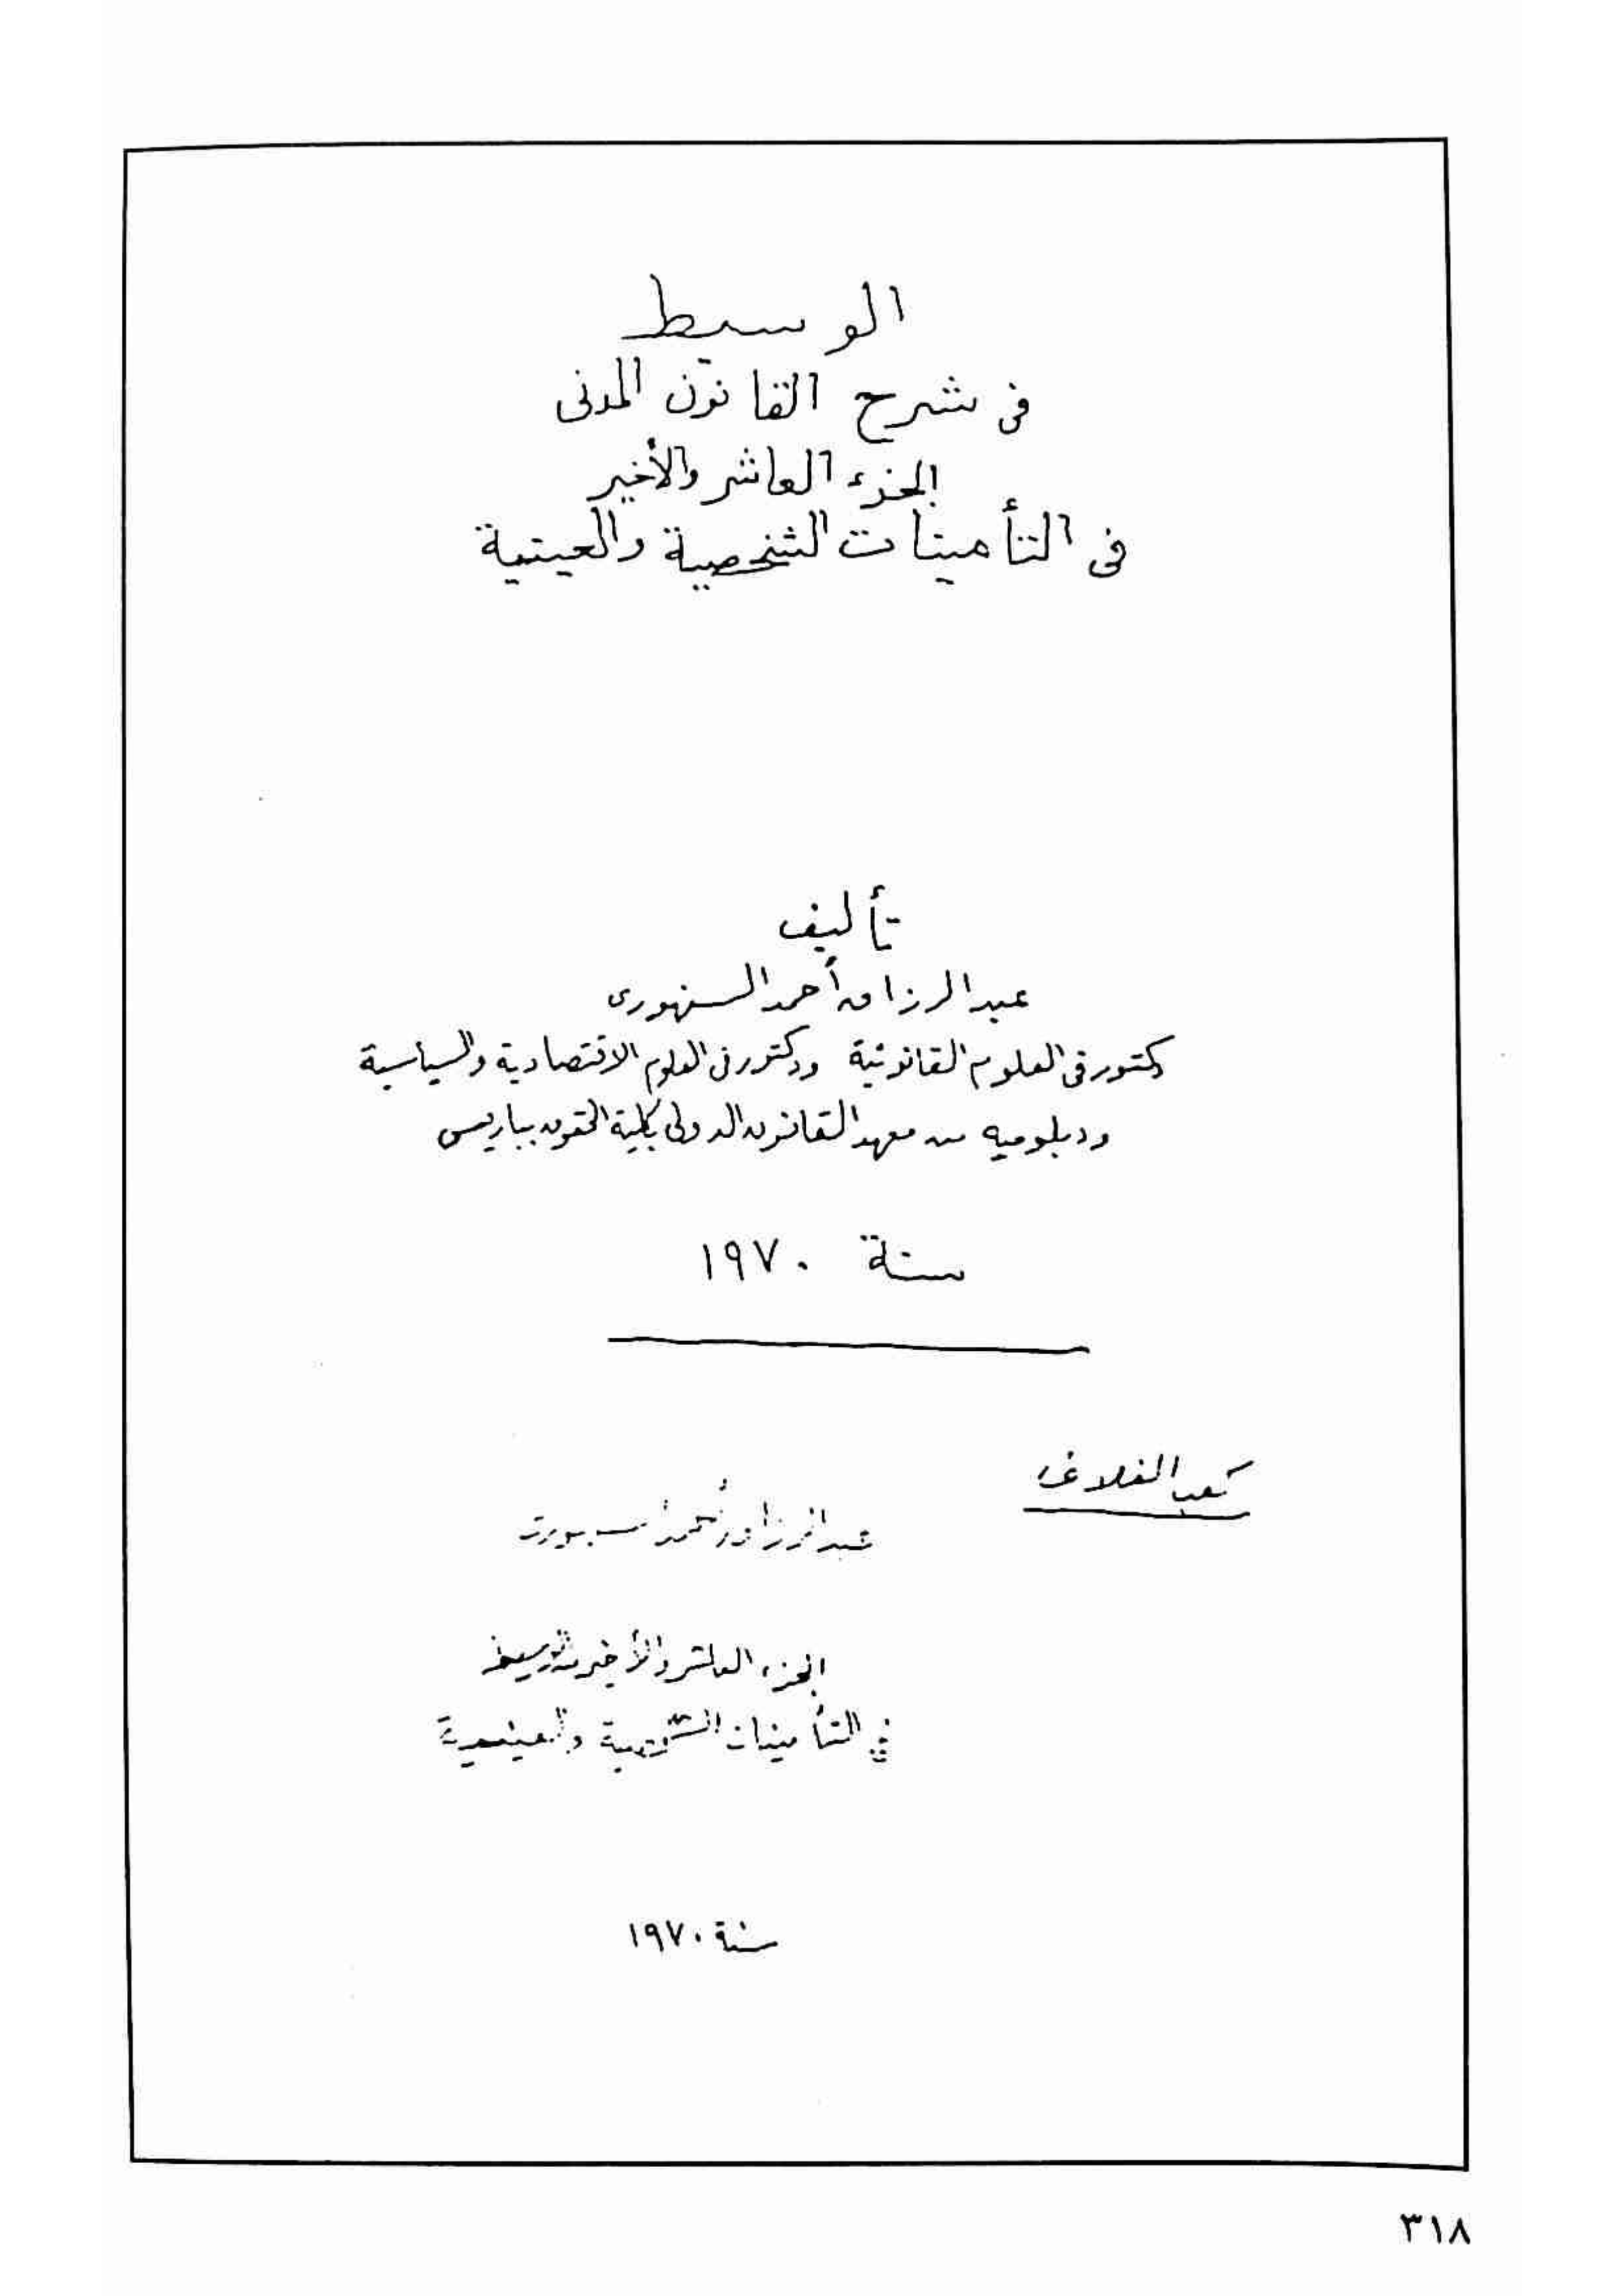 الوسيط
فى شرح القانون المدنى
الجزء العاشر والأخير
فى التأمينات الشخصية والعينية
تأليف
عبد الرزاق أحمد السنهورى
دكتور فى العلوم القانونية ودكتور فى العلوم الاقتصادية والسياسية
ودبلوميه من معهد القانون الدولى بكلية الحقوق بباريس
سنة ١٩٧٠
كعب الغلاف
عبد الرزاق أحمد السنهورى
الجزء العاشر والأخير من الوسيط
فى التأمينات الشخصية والعينية
سنة ١٩٧٠
٣١٨